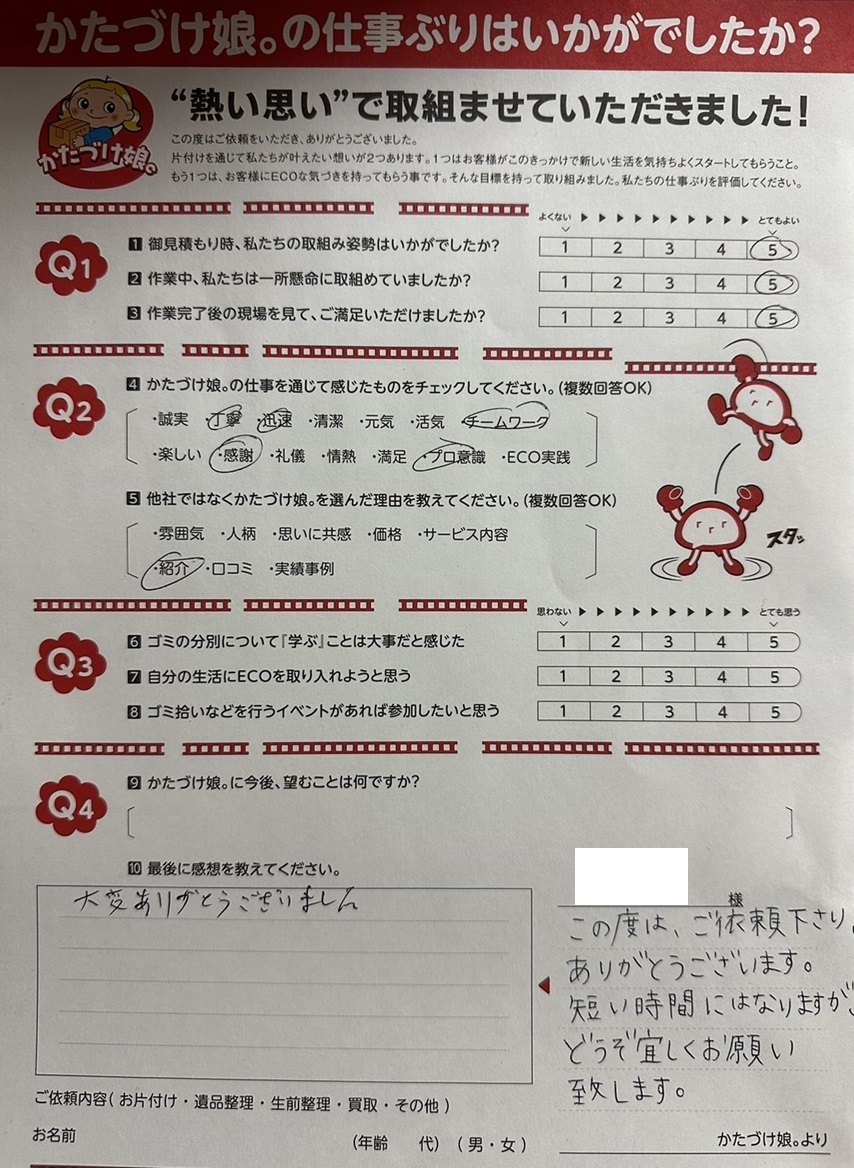 かたづけ娘。の仕事ぶりはいかがでしたか?
かたづけ娘。
“熱い思い”で取組ませていただきました!
この度はご依頼をいただき、ありがとうございました。
片付けを通じて私たちが叶えたい想いが2つあります。1つはお客様がこのきっかけで新しい生活を気持ちよくスタートしてもらうこと。
もう1つは、お客様にECOな気づきを持ってもらう事です。そんな目標を持って取り組みました。私たちの仕事ぶりを評価してください。
よくない ▶▶▶▶▶▶▶▶▶▶ とてもよい
Q1
1 御見積もり時、私たちの取組み姿勢はいかがでしたか? 1 2 3 4 5
2 作業中、私たちは一所懸命に取組めていましたか? 1 2 3 4 5
3 作業完了後の現場を見て、ご満足いただけましたか? 1 2 3 4 5
Q2
4 かたづけ娘。の仕事を通じて感じたものをチェックしてください。(複数回答OK)
・誠実 ・丁寧 ・迅速 ・清潔 ・元気 ・活気 ・チームワーク
・楽しい ・感謝 ・礼儀 ・情熱 ・満足 ・プロ意識 ・ECO実践
5 他社ではなくかたづけ娘。を選んだ理由を教えてください。(複数回答OK)
・雰囲気 ・人柄 ・思いに共感 ・価格 ・サービス内容
・紹介 ・口コミ ・実績事例
スタッ
思わない ▶▶▶▶▶▶▶▶▶▶ とても思う
Q3
6 ゴミの分別について『学ぶ』ことは大事だと感じた 1 2 3 4 5
7 自分の生活にECOを取り入れようと思う 1 2 3 4 5
8 ゴミ拾いなどを行うイベントがあれば参加したいと思う 1 2 3 4 5
Q4
9 かたづけ娘。に今後、望むことは何ですか?
10 最後に感想を教えてください。
大変ありがとうございました
様
この度は、ご依頼下さり、
ありがとうございます。
短い時間にはなりますが、
どうぞ宜しくお願い
致します。
かたづけ娘。より
ご依頼内容( お片付け・遺品整理・生前整理・買取・その他 )
お名前 (年齢 代) ( 男・女 )